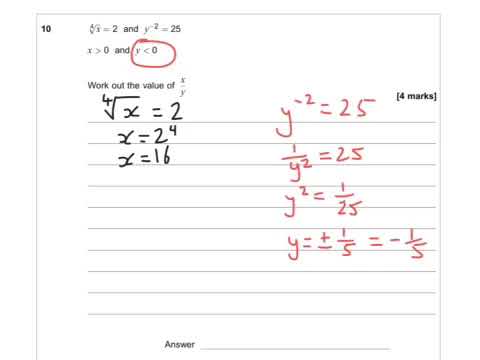 10 ∜x = 2 and y⁻² = 25
x > 0 and y < 0
Work out the value of x/y
[4 marks]
∜x = 2
x = 2⁴
x = 16
y⁻² = 25
1/y² = 25
y² = 1/25
y = ± 1/5 = - 1/5
Answer